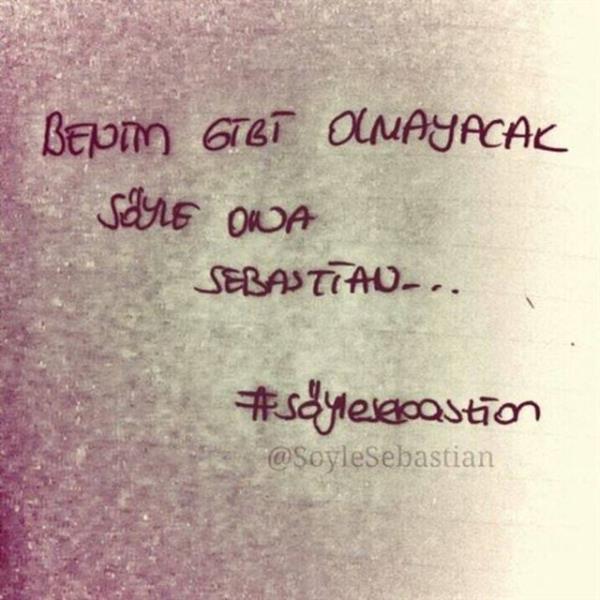 BENİM GİBİ OLMAYACAK
SÖYLE ONA
SEBASTİAN...
#söylesebastian
@SoyleSebastian